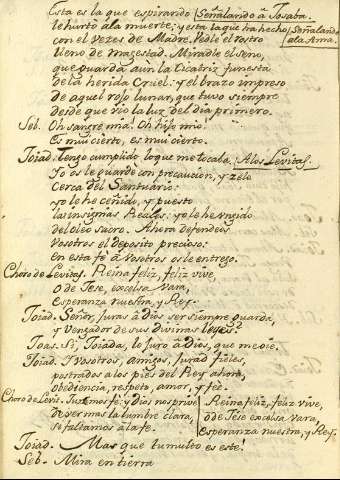 Esta es la que espirando (Señalando à Josaba.
le hurtó a la muerte: y esta la que ha hecho (Señalando
con el vezes de Madre. Vedle el rostro a la Ama.
lleno de magestad. Miradle el seno,
que guarda aun la cicatriz funesta
de la herida cruel: y el brazo impreso
de aquel rojo lunar, que tuvo siempre
desde que vio la luz del dia primero.
Seb. Oh sangre mia! Oh hijo mio!
Es mui cierto, es mui cierto.
Joiad. Tengo cumplido lo que me tocaba, (A los Levitas.
Yo os le guardè con precaucion, y zelo
Cerca del Santuario:
yo le he ceñido, y puesto
las insignias Reales: yo le he ungido
del oleo sacro. Ahora defended
Vosotros el deposito precioso:
en esta fè a vosotros os le entrego.
Choro de Levitas. Reina feliz, feliz vive,
O de Jese, excelsa Vara,
Esperanza nuestra, y Rey.
Joiad. Señor, juras à Dios ser siempre guarda,
y Vengador de sus divinas leyes?
Joas. Si, Joiada, lo juro à Dios, que me oie.
Joiad. I vosotros, amigos, jurad fieles,
postrados a los pies del Rey ahora,
obediencia, respeto, amor, y fè.
Choro de Levit. Juramos fè: y Dios nos prive Reina feliz, feliz vive,
de ver mas la lumbre clara, ò de Jese excelsa Vara,
si faltamos à la fe. esperanza nuestra, y Rey.
Joiad. Mas que tumulto es este!
Seb. Mira en tierra